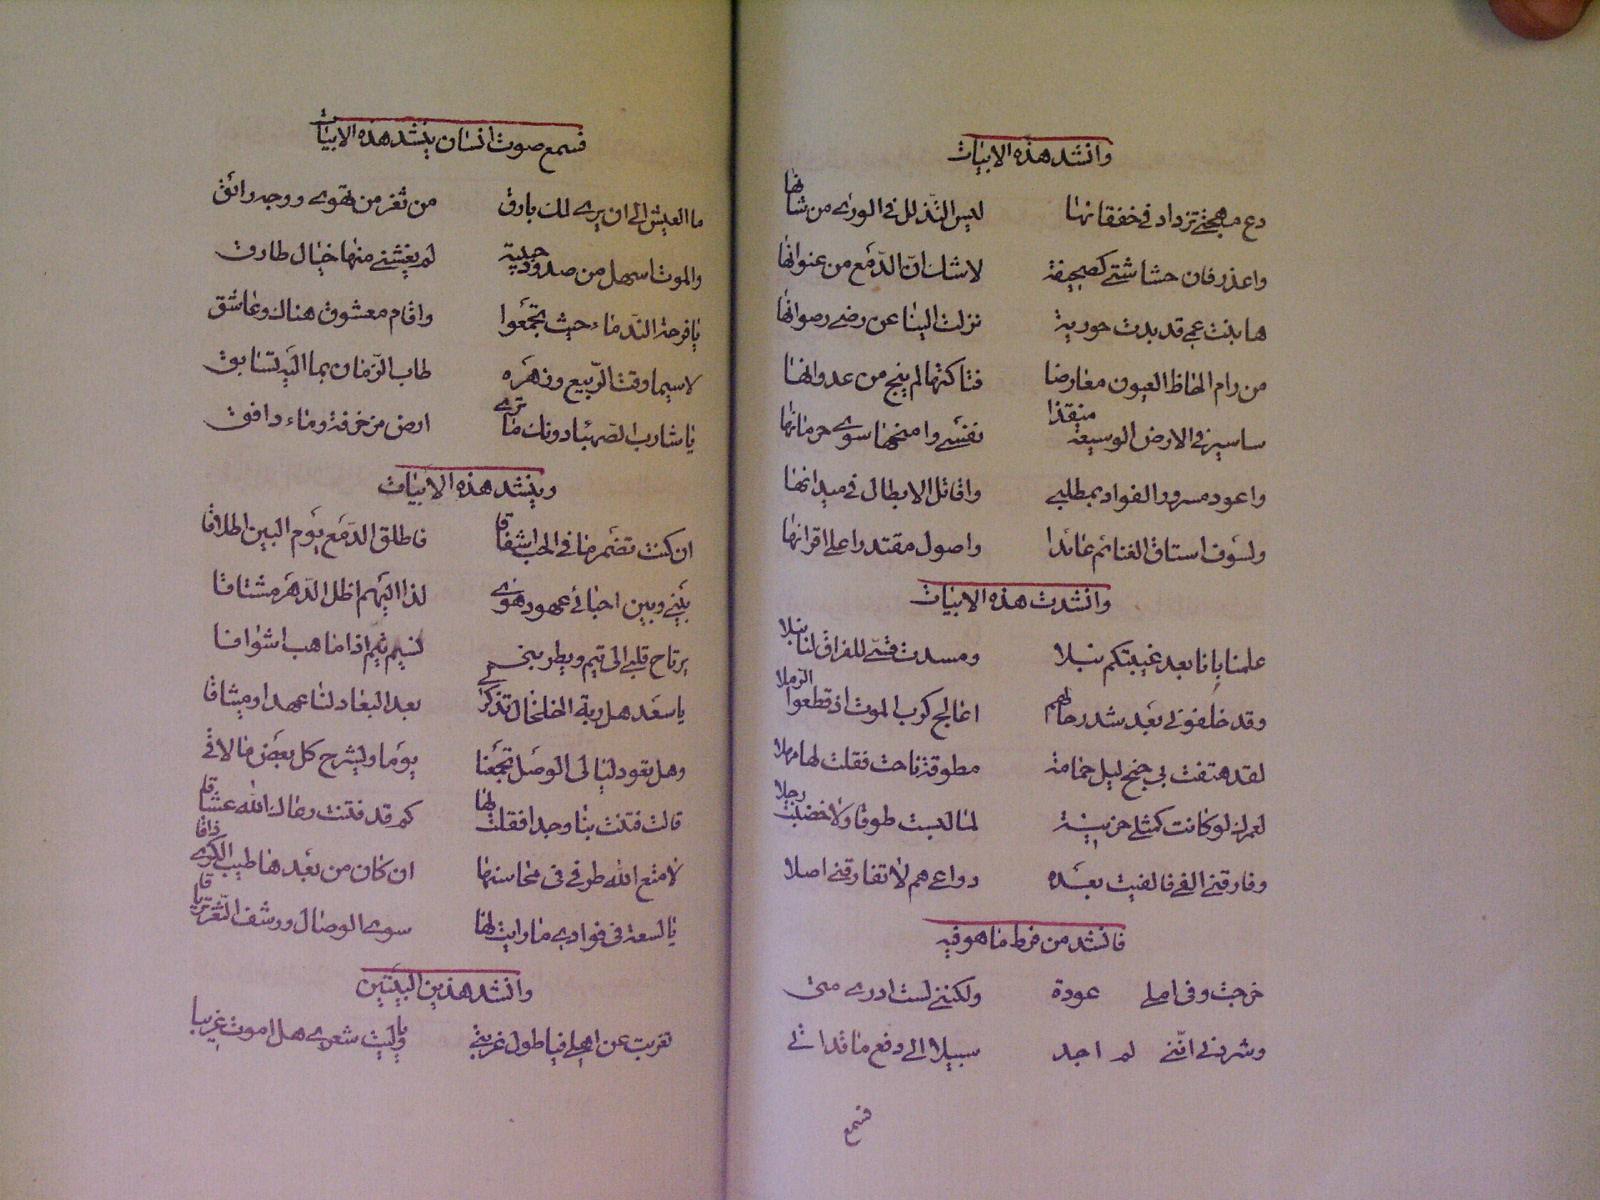 وانشد هذه الابيات
دع مهجتي تزداد في خفقانها ليس التذلل في الورى من شانها
واعذر فان حشاشتي كصحيفة لا شك ان الدمع من عنوانها
ها بنت عمي قد بدت حورية نزلت الينا عن رضى رضوانها
من رام الحاظ العيون معارضا فتاكتها لم ينج من عدوانها
ساسير في الارض الوسيعة منقذا نفسي وامنحها سوى حرمانها
واعود مسرور الفواد بمطلبي واقاتل الابطال في ميدانها
ولسوف استاق الغنائم عائدا واصول مقتدرا على اقرانها
وانشدت هذه الابيات
علمنا باٍنا بعد غيبتكم نبلا ومسدت قسي للفراق لنا نبلا
وقد خلفوني بعد شد رحالهم اعالج كرب الموت اذ قطعوا الرملا
لقد هتفت بي جنح ليل حمامة مطوقة ناحت فقلت لها مهلا
لعمرك لو كانت كمثلي حزينة لما لبست طوقا ولا خضبت رجلا
وفارقني الفي فالفيت بعده دواعي هم لا تفارقني اصلا
فانشد من فرط ما هو فيه
خرجت وفي املي عودة ولكنني لست ادرى متى
وشردني انني لم اجد سبيلا الى دفع ما قد اتى
فسمع
فسمع صوت انسان ينشد هذه الابيات
ما العيش الى ان يرى لك بارق من ثغر من تهوى ووجه رائق
والموت اسهل من صدود حبيبة لم يغشني منها خيال طارق
يا فرحة الندماء حيث تجمعوا واقام معشوق هناك وعاشق
لا سيما وقت الربيع وزهره طاب الزمان بما اليه تسابق
يا شارب الصهباء دونك ما ترى ارض مزخرفة وماء دافق
وينشد هذه الابيات
ان كنت تضمر ما في الحب اشفاقا فاطلق الدمع يوم البين اطلاقا
بيني وبين احبائي عهود هوى لذا اليهم اظل الدهر مشتاقا
يرتاح قلبي الى تيم ويطربني نسيم تيم اذا ما هب اشواقا
يا سعد هل ربة الخلخال تذكرني بعد البعاد لنا عهدا وميثاقا
وهل تعود ليالى الوصل تجمعنا يوما ويشرح كل بعض ما لاقى
قالت فتنت بنا وجدا فقلت لها كم قد فتنت رعاك الله عشاقا
لا متع الله طرفي في محاسنها ان كان من بعدها طيب الكرى ذاقا
يا لسعة في فوادي ما رايت لها سوى الوصال ورشف الثغر ترياقا
وانشد هذين البيتين
تغربت عن اهلي فيا طول غربتي ويا ليت شعرى هل اموت غريبا